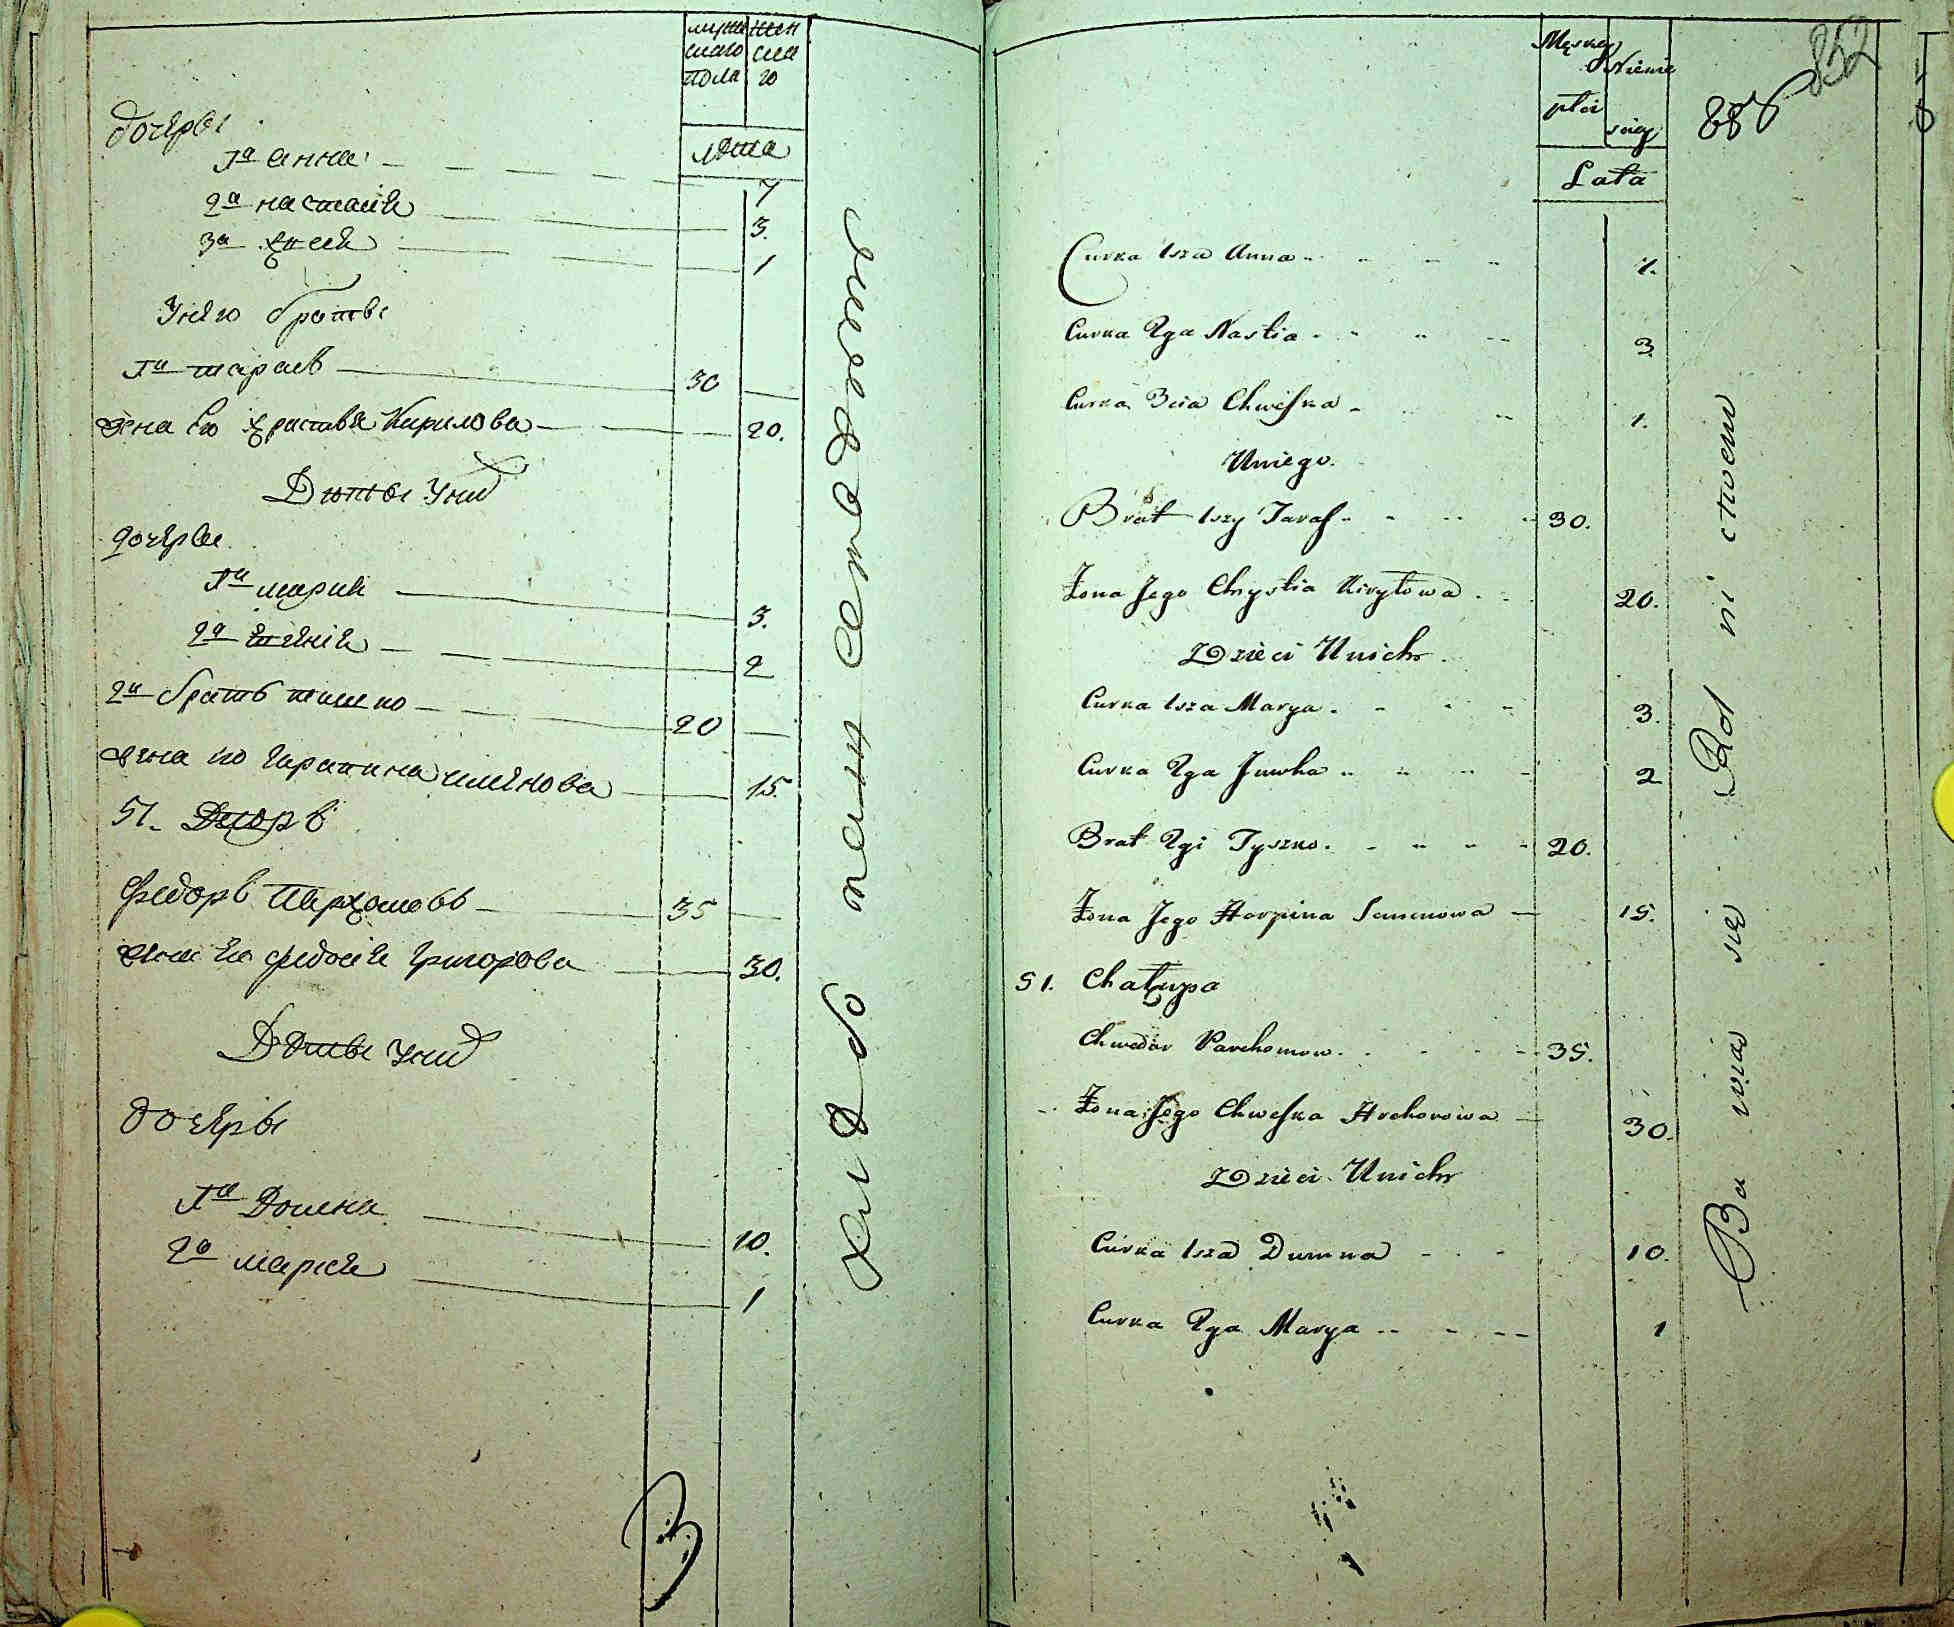 мужескаго пола
женскаго
лѣта
дочеры
1а анна 7
2а настасія 3.
3а 1
Унего братьѣ
1й тарасъ 30
жена его христья Кирилова 20.
Дѣтѣ Уних
дочеры
1а мария 3.
2а 2
2й братъ тишко 20
жена его гарпина семенова 15.
51. Дворъ
Федоръ Пархомовъ 35
жена его федосія григорова 30.
Дѣтѣ Уних
дочеры
1а Домна 10.
2а мария 1
Męskiey płci
Niewieściey
Lata
852
Curka 1sza Anna 7.
Curka 2ga Nastia 3
Curka 3cia Chweśka 1.
Uniego.
Brat 1szy Taras 30.
Żona Jego Chrystia Kiryłowa 20.
Dzieci Unich.
Curka 1sza Marya 3.
Curka 2ga Juwha 2
Brat 2gi Tyszko 20.
Żona Jego Horpina Semenowa 15.
51. Chałupa
Chwedor Parchomow 35.
Żona Jego Chweśka Hrehorowa 30.
Dzieci Unich
Curka 1sza Dumna 10.
Curka 2ga Marya 1